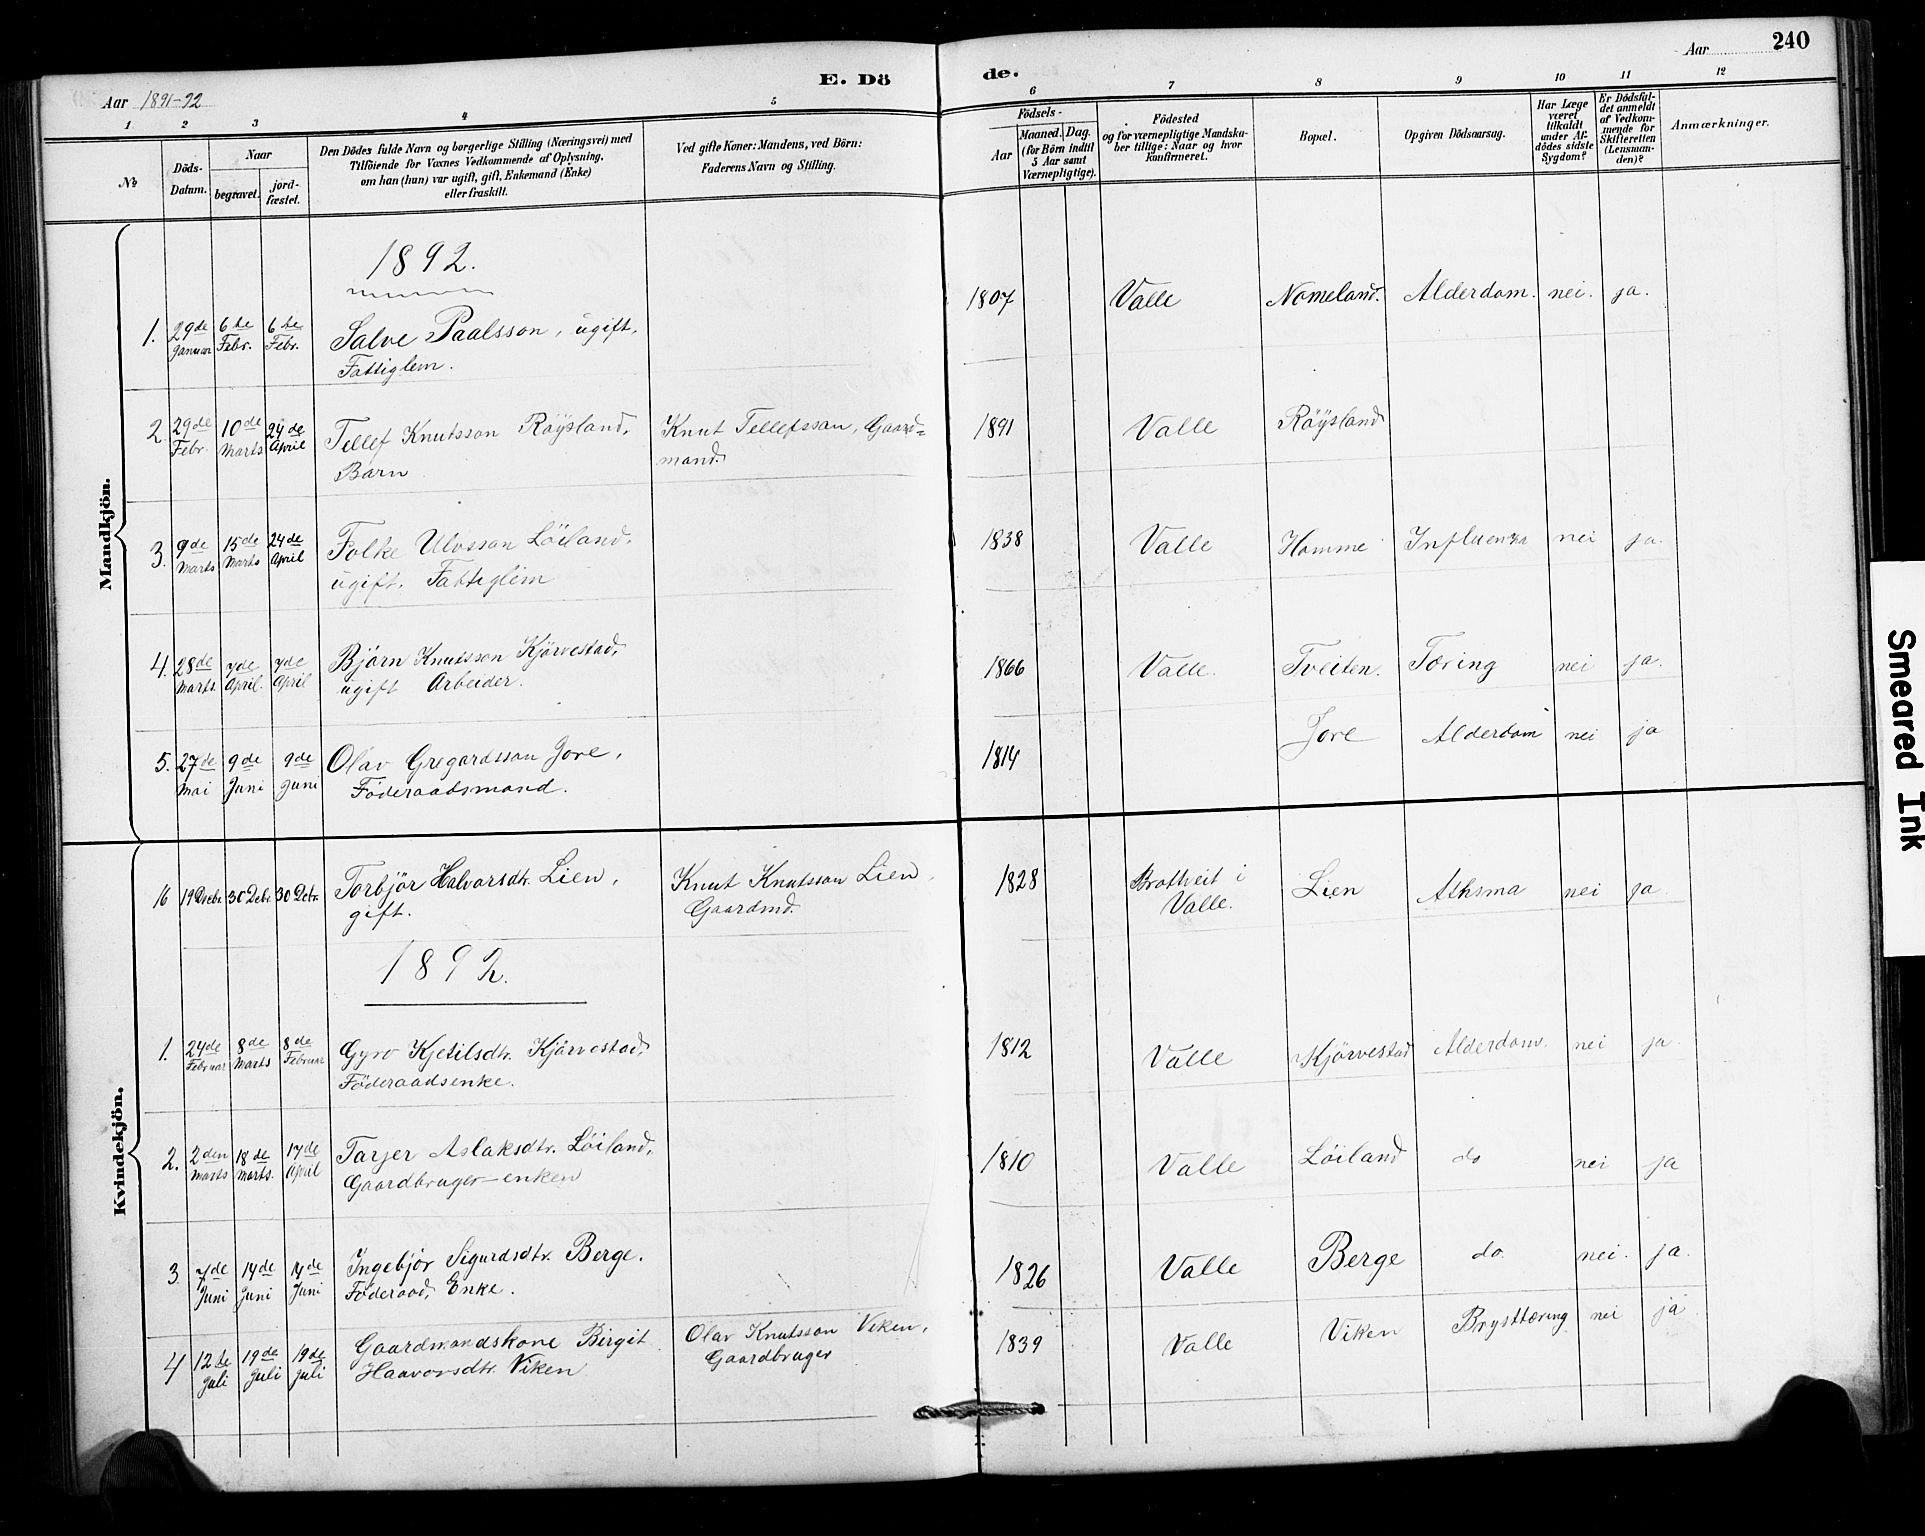 Aar 1891-92
E. Dö
de.
Aar
240
1 2 3 4 5 6 7 8 9 10 11 12
No
Döds-
Datum.
Naar
begravet.
jord-
fæstet.
Den Dödes fulde Navn og borgerlige Stilling (Næringsvei) med
Tilföiende for Voxnes Vedkommende af Oplysning,
om han (hun) var ugift, gift, Enkemand (Enke)
eller fraskilt.
Ved gifte Koner: Mandens, ved Börn:
Faderens Navn og Stilling.
Födsels-
Aar
Maaned. Dag.
(for Börn indtil
5 Aar samt
Værnepligtige).
Födested
og for værnepligtige Mandska-
ber tillige: Naar og hvor
konfirmeret.
Bopæl.
Opgiven Dödsaarsag.
Har Læge
været
tilkaldt
under Af-
dödes sidste
Sygdom?
Er Dödsfal-
det anmeldt
af Vedkom-
mende for
Skifteretten
(Lensman-
den)?
Anmærkninger.
Mandkjön.
1892.
1. 29de Januar 6te Febr. 6te Febr. Salve Paalsson, ugift, 1807 Valle Nomeland. Alderdom. nei. ja.
Fattiglem.
2. 29de Febr. 10de Marts 24de April Tellef Knutsson Röysland, Knut Tellefsson, Gaard= 1891 Valle Röysland
Barn mand.
3. 9de Marts 15de Marts 24de April Folke Ulvsson Löiland, 1838 Valle Homme Influenza nei ja.
ugift. Fattiglem
4. 28de Marts. 7de April. 7de April Björn Knutsson Kjörvestad, 1866 Valle. Tveiten. Tæring nei ja.
ugift Arbeider.
5. 27de Mai 9de Juni 9de Juni Olav Gregardsson Jore, 1814 Jore Alderdom nei ja
Föderaadsmand.
Kvindekjön.
16 19 Decbr. 30 Debr 30 Debr. Torbjör Halvorsdtr. Lien, Knut Knutsson Lien, 1828 Brottveit i Lien Athsma nei ja
gift. Gaardmd. Valle.
1892.
1. 24de Februar 8de Marts 8de Februar Gyro Kjetilsdtr. Kjörvestad, 1812 Valle Kjörvestad Alderdom. nei ja.
Föderaadsenke.
2. 2den Marts 18de Marts. 17de April Tarjer Aslaksdtr. Löiland, 1810 Valle Löiland do nei ja
Gaardbruger-enken
3. 7de Juni 14de Juni 14de Juni Ingebjör Sigurdsdtr. Berge. 1826 Valle Berge do. nei. ja.
Föderaad, Enke.
4 12te Juli 19de Juli 19de Juli Gaardmandskone Birgit Olav Knutsson Viken, 1839 Valle Viken Brysttæring nei ja
Haavorsdtr. Viken Gaardbruger
Smeared Ink